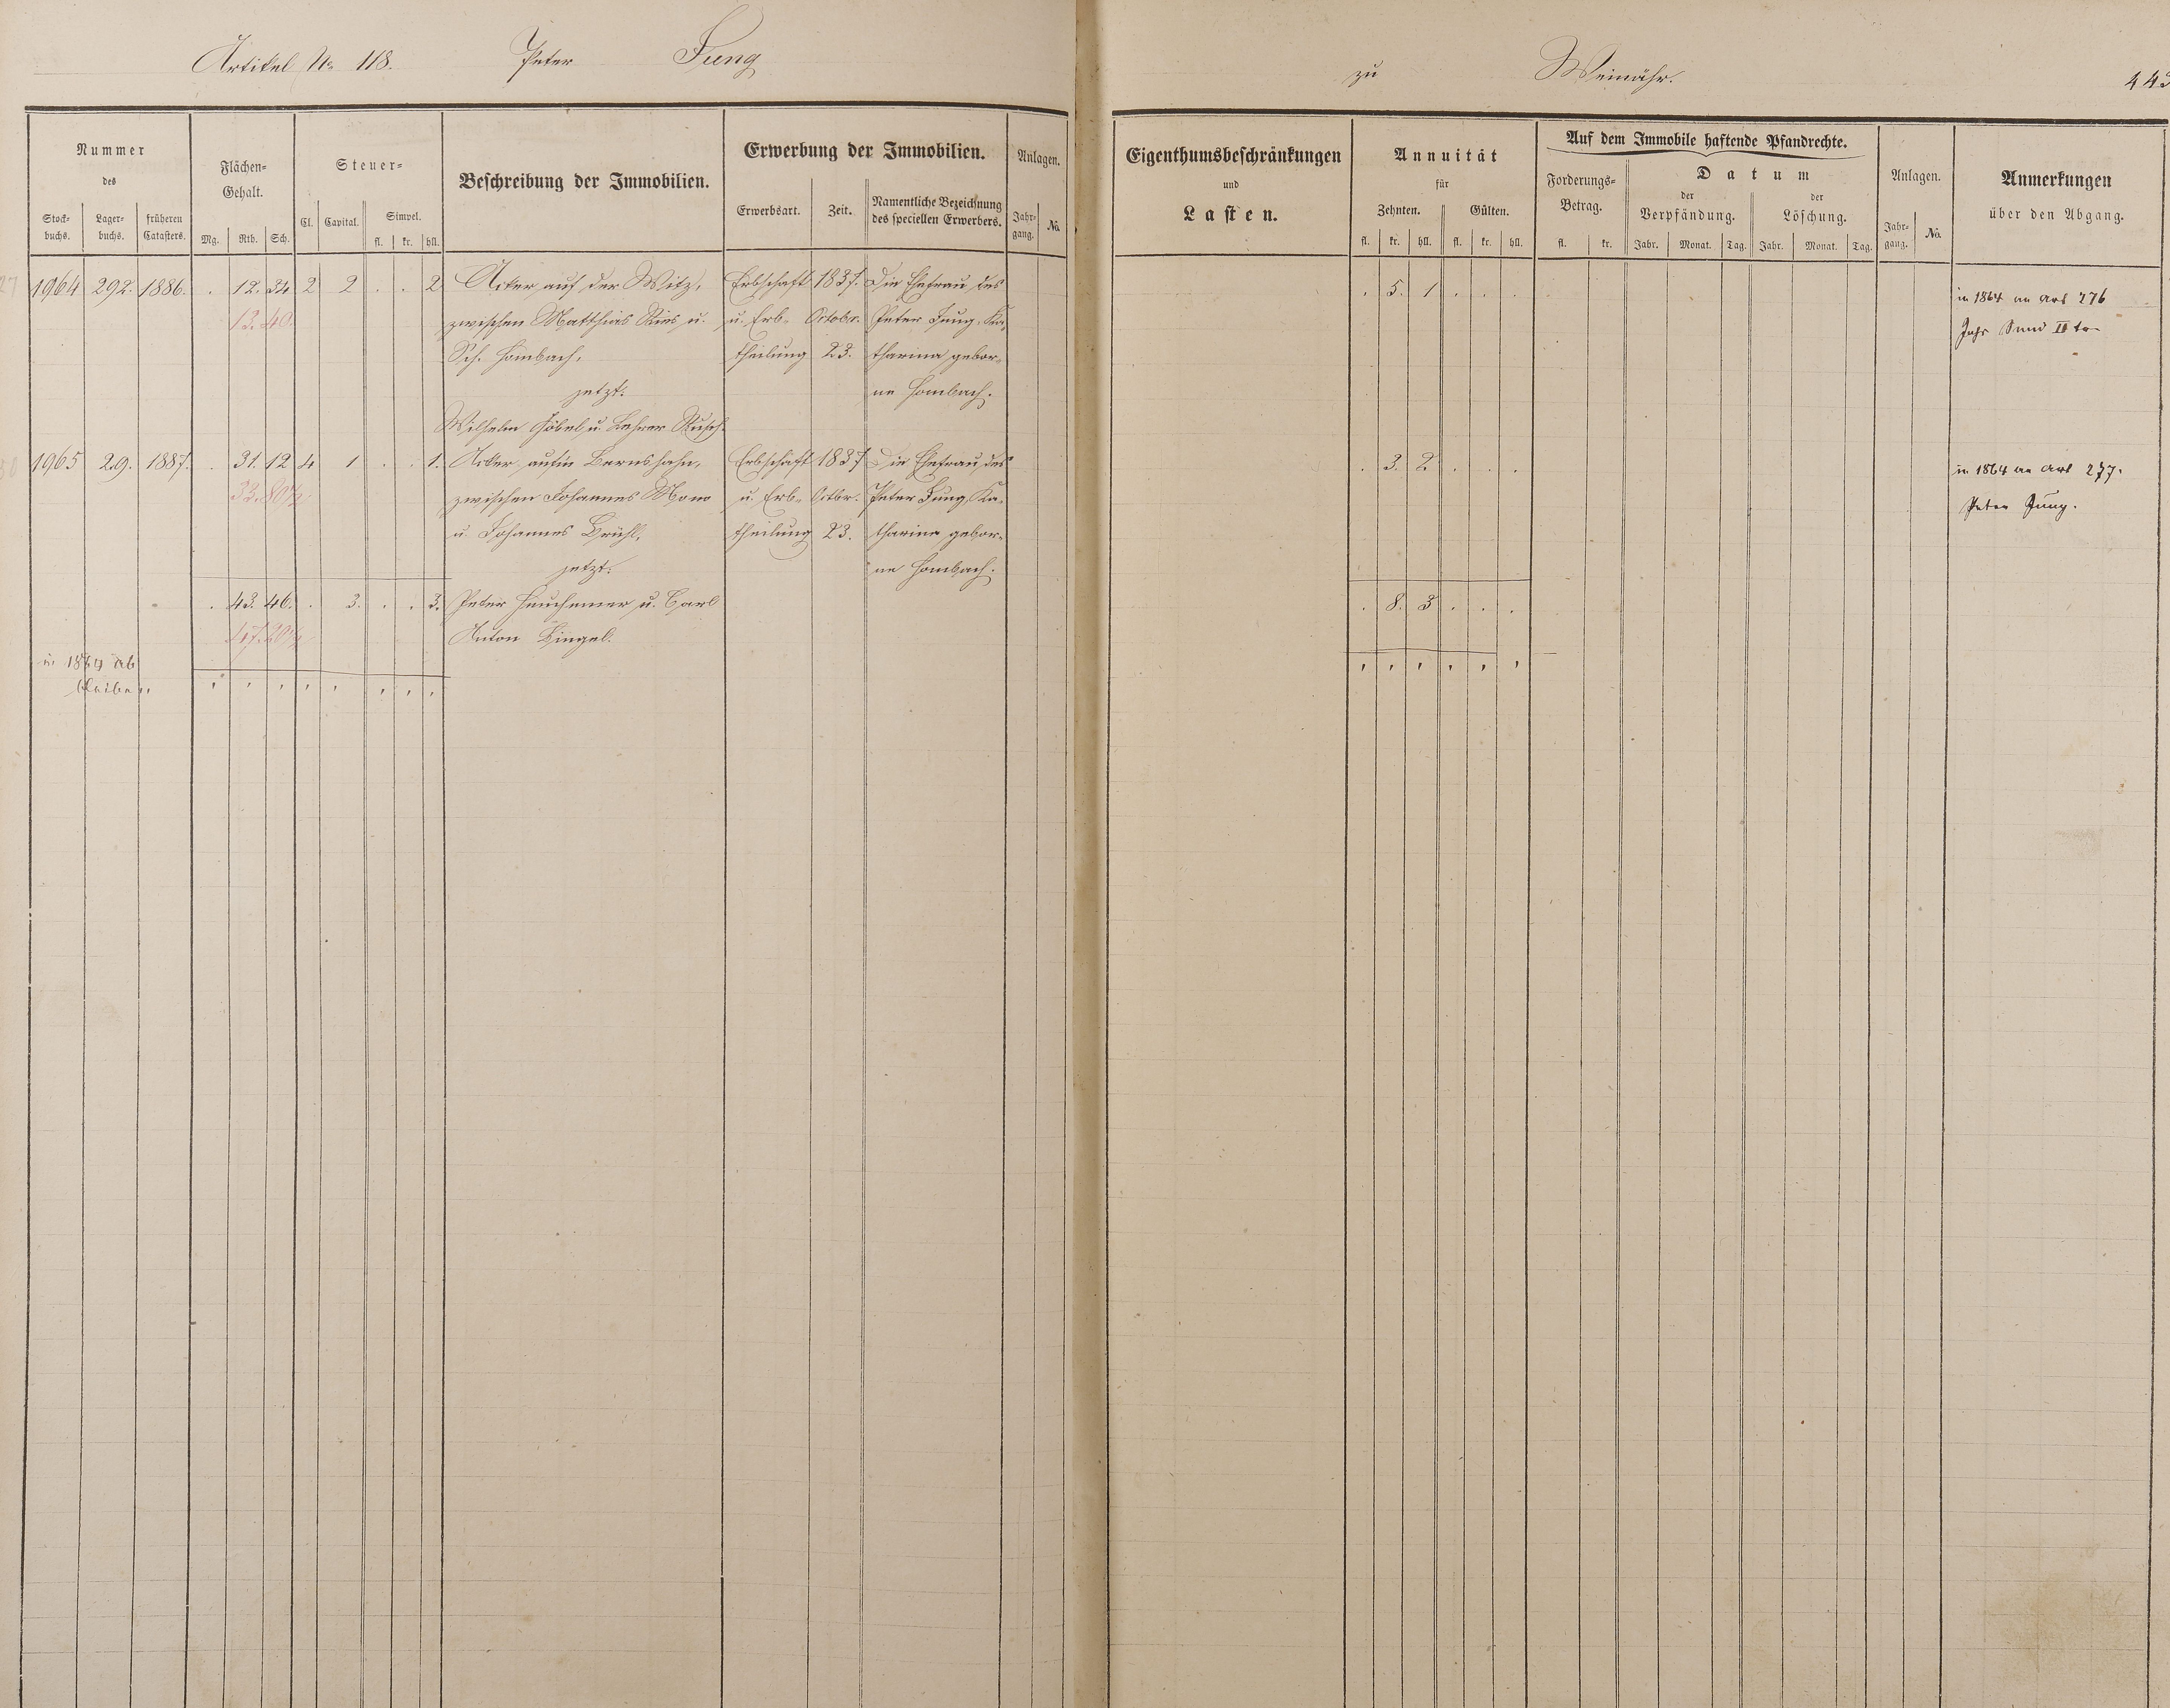 Artikel No 118. Peter Jung zu Weinähr. 443
Nummer des
Stock-buchs. Lager-buchs. früheren Catasters.
Flächen-Gehalt.
Mg. Rth. Sch.
Steuer-
Cl. Capital. Simpel.
fl. kr. hll.
Beschreibung der Immobilien.
Erwerbung der Immobilien.
Erwerbsart. Zeit. Namentliche Bezeichnung des speciellen Erwerbers.
Anlagen.
Jahr-gang. No.
Eigenthumsbeschränkungen
und
Lasten.
Annuität
für
Zehnten. Gülten.
fl. kr. hll. fl. kr. hll.
Auf dem Immobile haftende Pfandrechte.
Forderungs-Betrag.
fl. kr.
Datum
der Verpfändung. der Löschung.
Jahr. Monat. Tag. Jahr. Monat. Tag.
Anlagen.
Jahr-gang. No.
Anmerkungen
über den Abgang.
1964 292. 1886. . 12. 34 2 2 . . 2 Acker auf der Witz, Erbschaft 1837. Die Ehefrau des . 5. 1 . . . in 1864 an Art 276
13. 40. zwischen Matthias Ries u. u. Erb- Octobr. Peter Jung, Ka-
Sch. Hombach, theilung 23. tharina gebor-
jetzt: ne Hombach.
Wilhelm Göbel u. Lehrer
1965 29. 1887. . 31. 12 4 1 . . 1. Acker auf'm Bernshahn, Erbschaft 1837 Die Ehefrau des . 3. 2 . . . in 1864 an Art 277.
zwischen Johannes u. Erb- Octbr. Peter Jung, Ka- Peter Jung.
u. Johannes Brühl, theilung 23. tharina gebor-
jetzt: ne Hombach.
. 43. 46. . 3. . . 3. Peter u. Carl . 8. 3 . . .
Anton Bingel.
in 1864 ab
bleiben